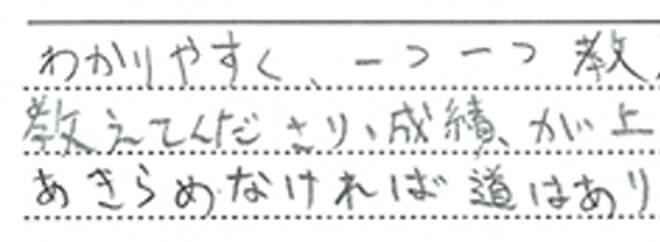 わかりやすく、一つ一つ教
教えてんださり、成績、が上
あきらめなければ道はあり